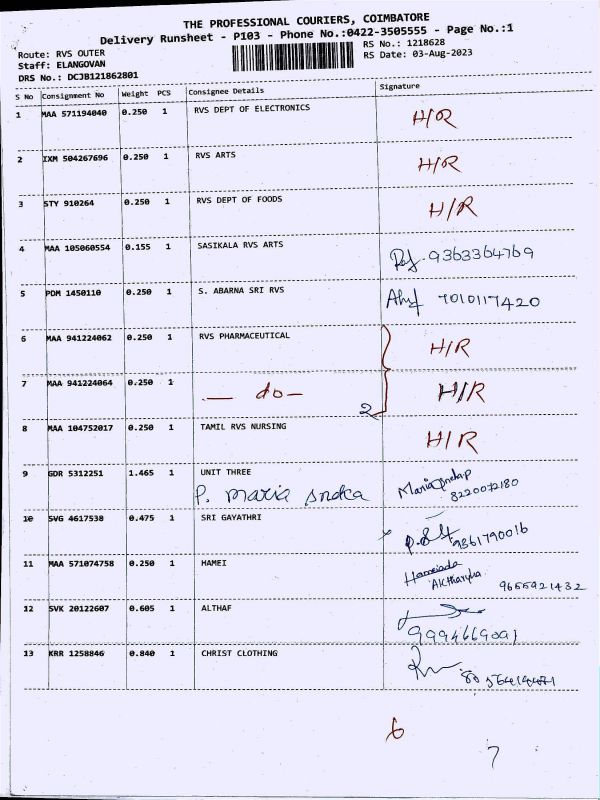 THE PROFESSIONAL COURIERS, COIMBATORE
Delivery Runsheet - P103 - Phone No.:0422-3505555 - Page No.:1
Route: RVS OUTER
RS No.: 1218628
Staff: ELANGOVAN
RS Date: 03-Aug-2023
DRS No.: DCJB121862801
S No Consignment No Weight PCS Consignee Details Signature
1 MAA 571194040 0.250 1 RVS DEPT OF ELECTRONICS H/R
2 IXM 504267696 0.250 1 RVS ARTS H/R
3 STY 910264 0.250 1 RVS DEPT OF FOODS H/R
4 MAA 105060554 0.155 1 SASIKALA RVS ARTS 9363364769
5 PDM 1450110 0.250 1 S. ABARNA SRI RVS 7010117420
6 MAA 941224062 0.250 1 RVS PHARMACEUTICAL H/R
7 MAA 941224064 0.250 1 — do — H/R
2
8 MAA 104752017 0.250 1 TAMIL RVS NURSING H/R
9 GDR 5312251 1.465 1 UNIT THREE
P. maria sndca
8220072180
10 SVG 4617538 0.475 1 SRI GAYATHRI
9361790016
11 MAA 571074758 0.250 1 HAMEI
9655921432
12 SVK 20122607 0.605 1 ALTHAF
9994669091
13 KRR 1258846 0.840 1 CHRIST CLOTHING
6
7